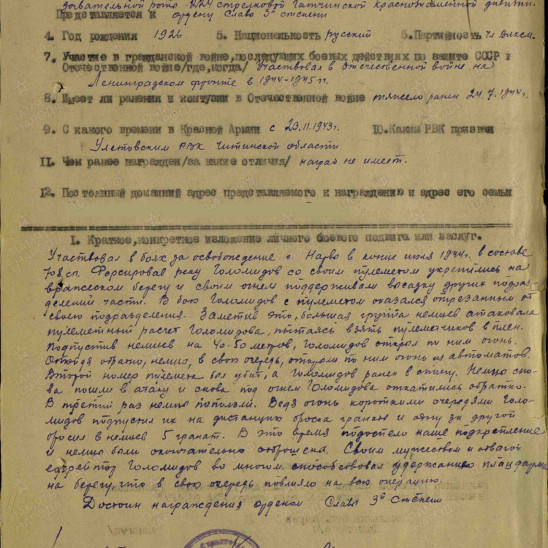 стрелковой Гатчинской краснознаменной дивизии
Представляется к ордену Слава 3й степени
4. Год рождения 1926 5. Национальность русский 6. Партийность чл. влксм.
7. Участие в гражданской войне, последующих боевых действиях по защите СССР и
Отечественной войне/где, когда/ Участвовал в отечественной войне на
Ленинградском фронте в 1944-1945 гг.
8. Имеет ли ранения и контузии в Отечественной войне тяжело ранен 24.7.1944г.
9. С какого времени в Красной Армии с 23.11.1943г. 10. Каким РВК призван
Улетовским РВК Читинской области
11. Чем ранее награжден/за какие отличия/ наград не имеет.
12. Постоянный домашний адрес представляемого к награждению и адрес его семьи
I. Краткое, конкретное изложение личного боевого подвига или заслуг.
Участвовал в боях за освобождение г. Нарва в конце июля 1944г. в составе
сп. Форсировав реку Голомидов со своим пулеметом укрепились на
вражеском берегу и своим огнем поддерживал высадку других подраз
делений части. В бою Голомидов с пулеметом оказался отрезанным от
своего подразделения. Заметив это, большая группа немцев атаковала
пулеметный расчет Голомидова, пытаясь взять пулеметчиков в плен.
Подпустив немцев на 40-50 метров, Голомидов открыл по ним огонь.
обратно, немцы, в свою очередь, открыли по ним огонь из автоматов.
Второй номер пулемета был убит, а Голомидов ранен в спину. Немцы сно
ва пошли в атаку и снова под огнем Голомидова откатились обратно.
В третий раз немцы поползли. Ведя огонь короткими очередями Голо-
мидов подпустил их на дистанцию броска гранаты и одну за другой
бросил в немцев 5 гранат. В это время подоспело наше подкрепление
и немцы были окончательно отброшены. Своим мужеством и отвагой
Голомидов во многом способствовал удержанию плацдарма
на берегу, что в свою очередь повлияло на всю операцию.
Достоин награждения орденом Слава 3й степени